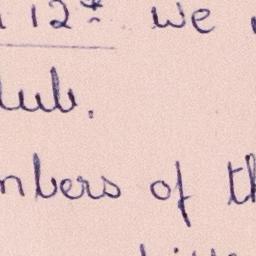 12th we
lub.
mbers of th